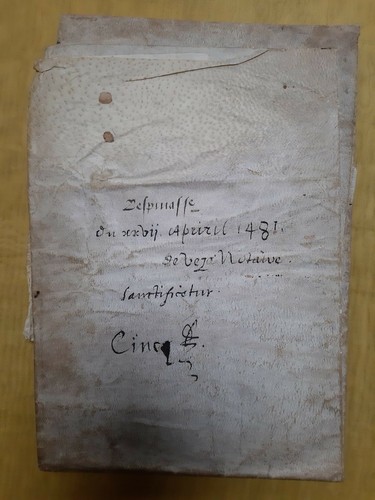 Despinasse
du xxvij. Apriril 1481.
de vezi Notaire.
sanctificetur.
Cincq